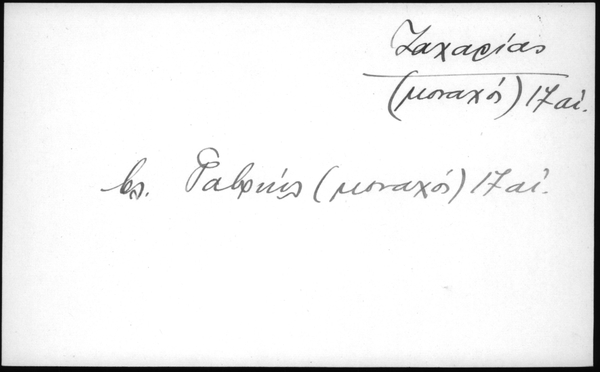 Ζαχαρίας
(μοναχός) 17 αἰ.
βλ. Γαβριήλ (μοναχός) 17 αἰ.